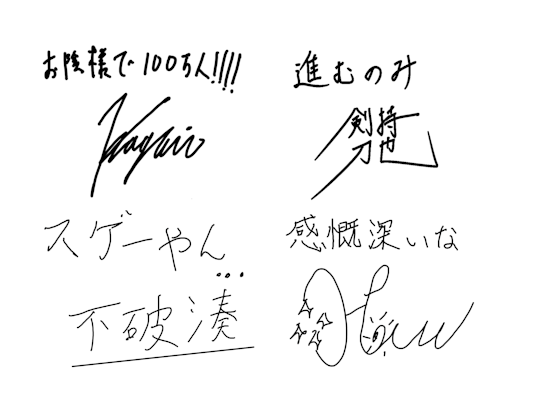 お陰様で100万人!!!!
進むのみ
剣持刀也
スゲーやん...
不破湊
感慨深いな